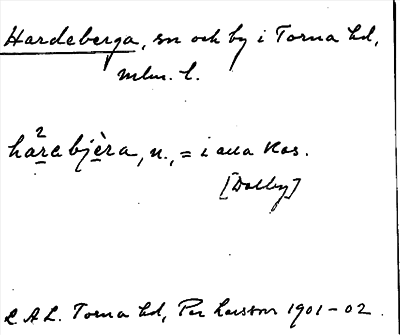 Hardeberga, sn och by i Torna hd,
mlm. l.
hȧ̲re bjè̲ra, n., = i alla kas.
[Dalby]
L A L. Torna hd, Per Larsson 1901-02.